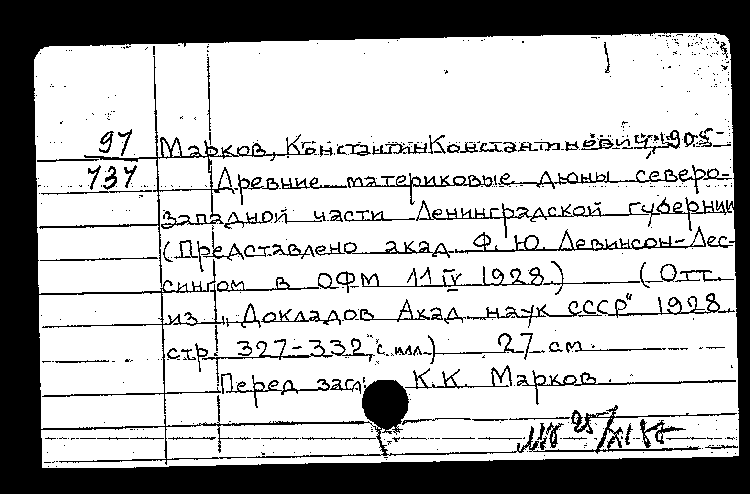 97 Марков, Константин Константинович, 1905-
737 Древние материковые дюны северо-
западной части Ленинградской губернии
(Представлено акад. Ф. Ю. Левинсон-Лес-
сингом в ОФМ 11 IV 1928.) (Отт.
из „Докладов Акад. наук СССР" 1928.
стр. 327-332, с илл.) 27 см.
Перед загл. К.К. Марков.
25/XI